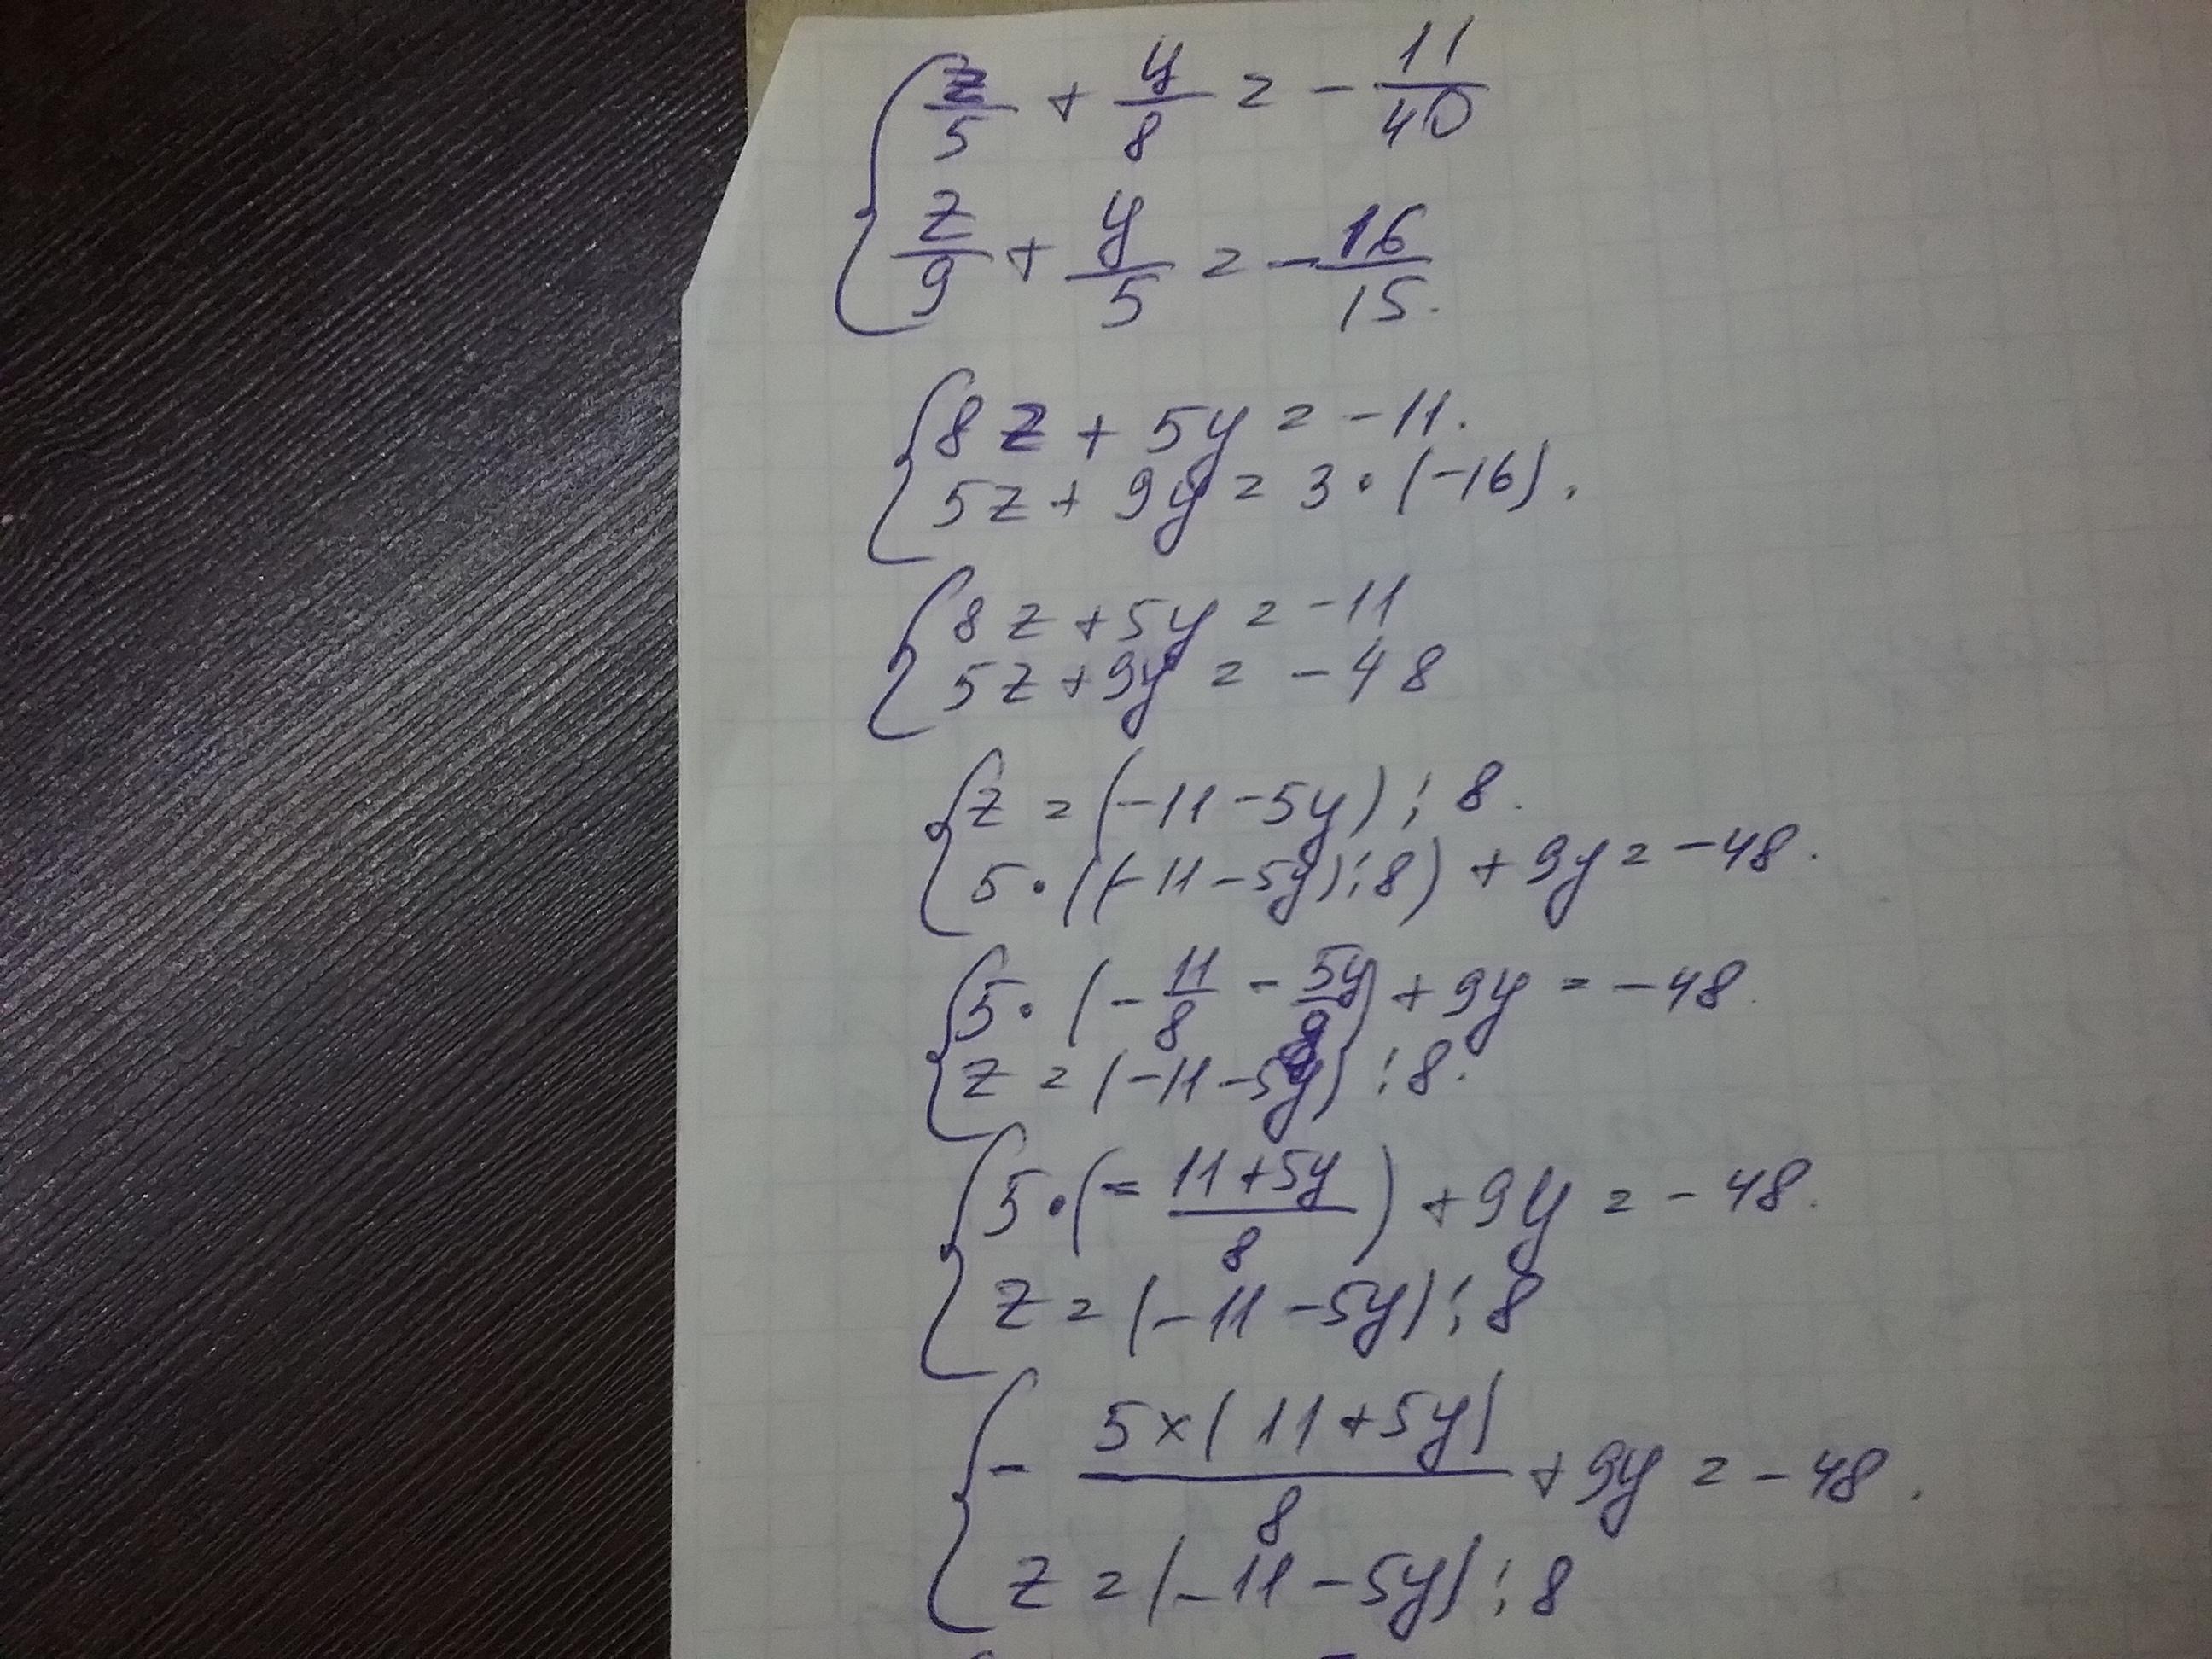 z/5 + y/8 = - 11/40
z/9 + y/5 = - 16/15.
8z + 5y = -11.
5z + 9y = 3 · (-16).
8z + 5y = -11
5z + 9y = -48
z = (-11 - 5y) : 8.
5 · ((-11 - 5y) : 8) + 9y = -48.
5 · (- 11/8 - 5y/8) + 9y = -48.
z = (-11 - 5y) : 8.
5 · (- (11 + 5y)/8) + 9y = -48.
z = (-11 - 5y) : 8
- 5×(11 + 5y)/8 + 9y = -48.
z = (-11 - 5y) : 8